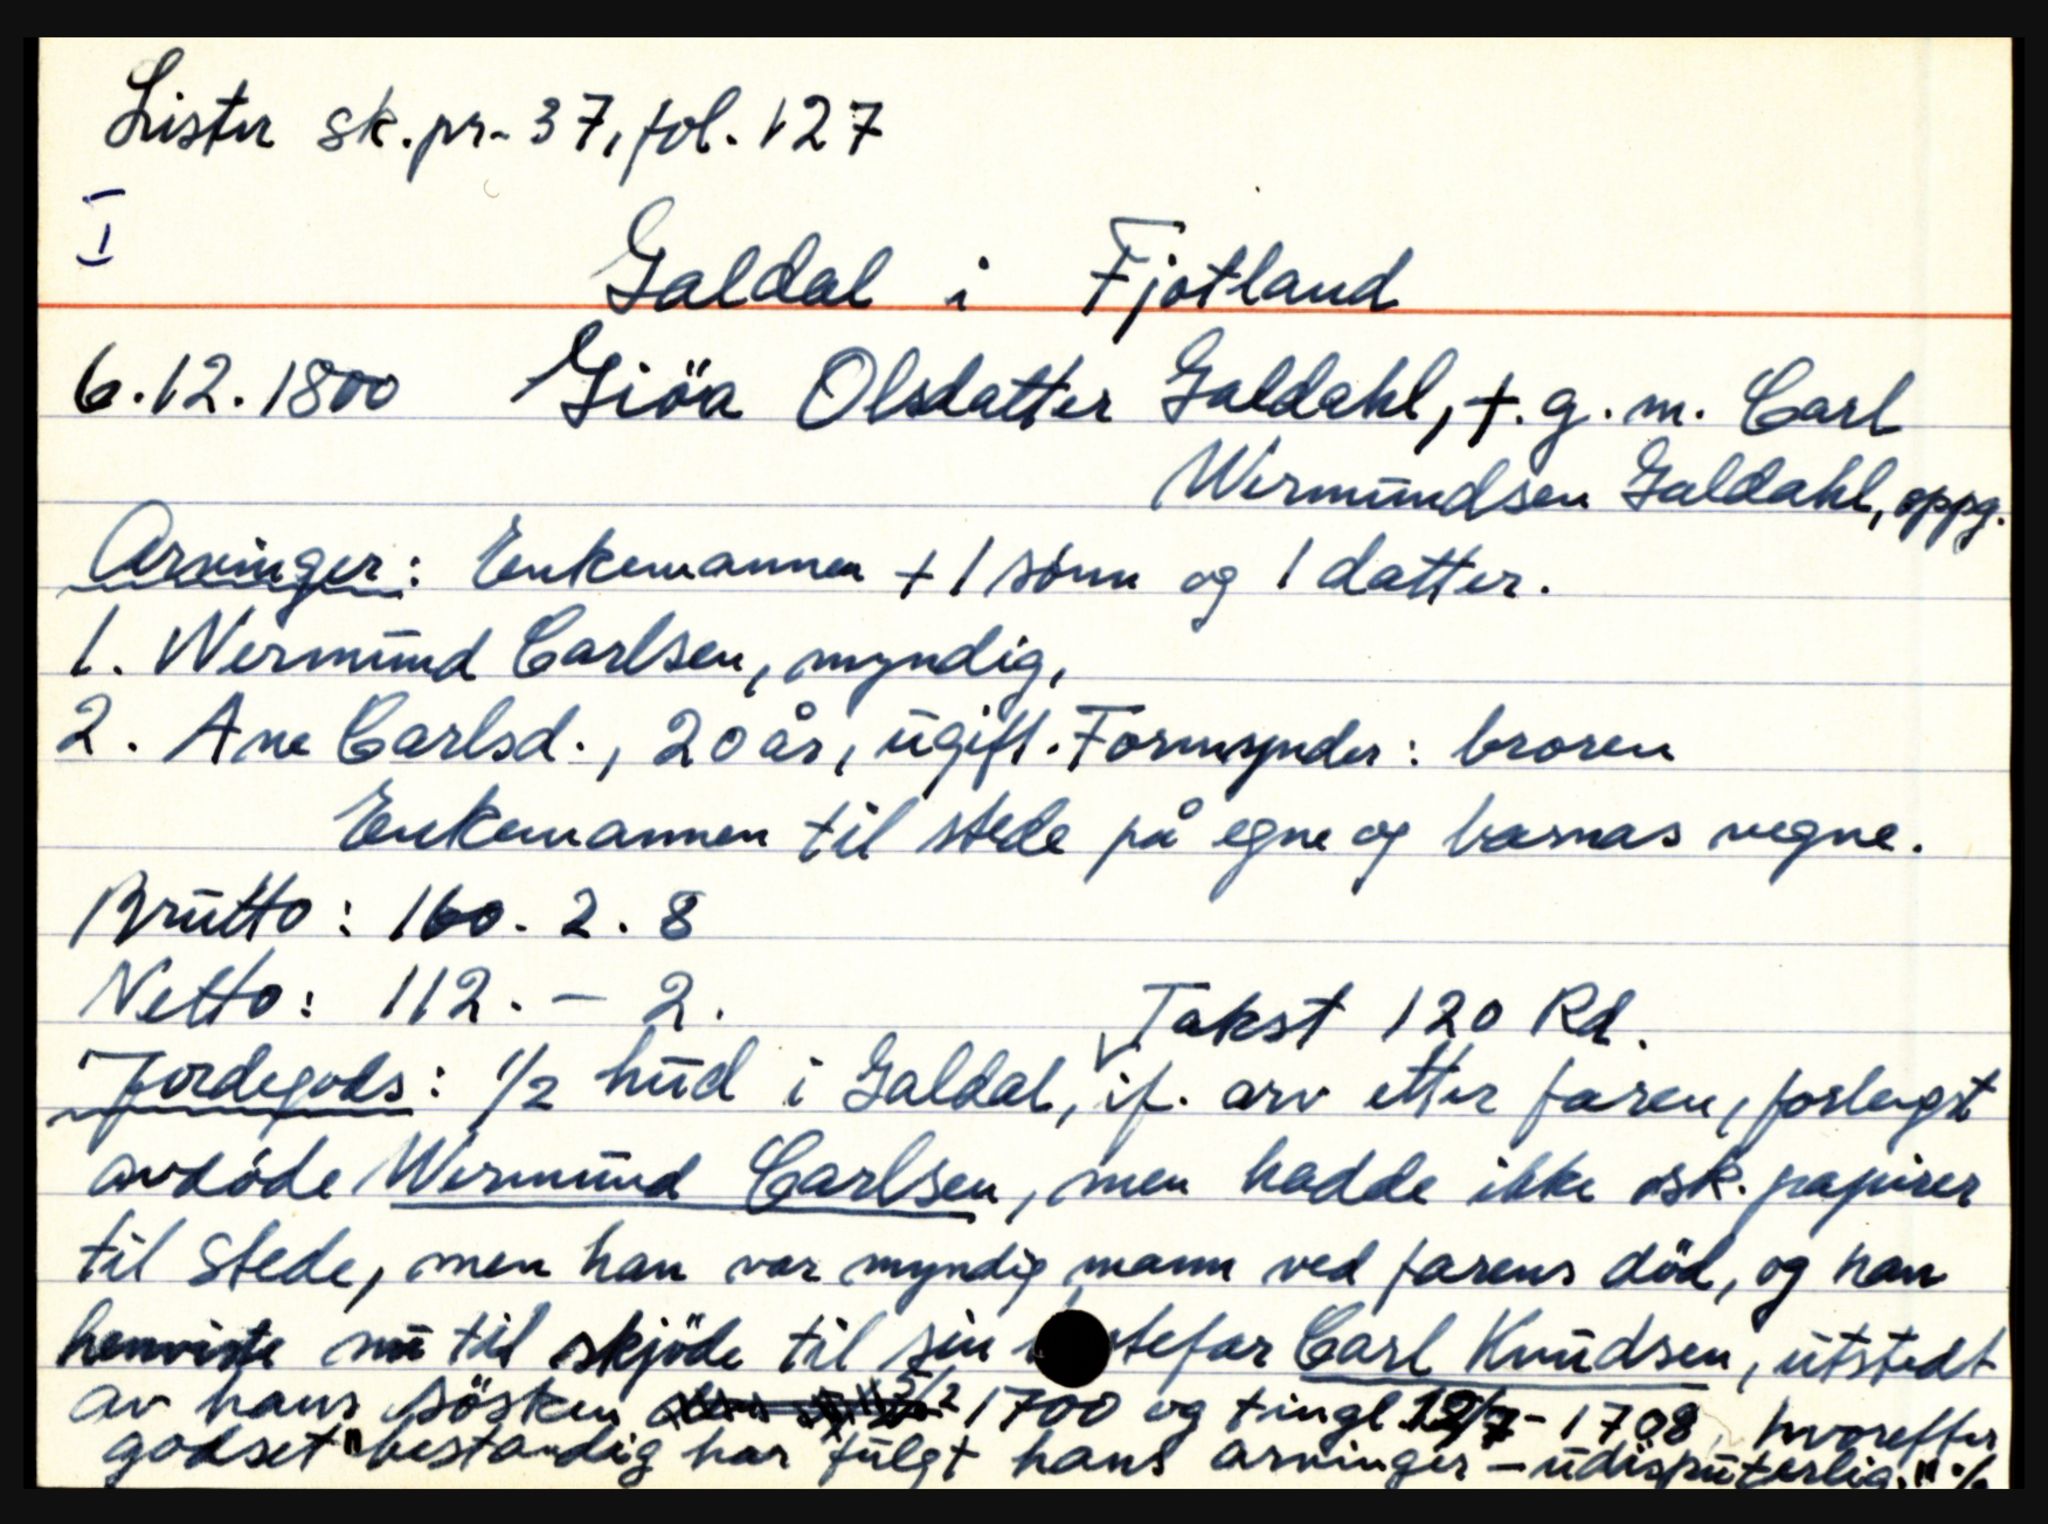 Lister sk.pr. 37, fol. 127
I
Galdal i Fjotland
6.12.1800 Giöa Olsdatter Galdahl, †. g. m. Carl
Wermundsen Galdahl, oppg.
Arvinger: Enkemannen + 1 sønn og 1 datter.
1. Wermund Carlsen, myndig,
2. Ane Carlsd., 20 år, ugift. Formynder: broren
Enkemannen til stede på egne og barnas vegne.
Brutto: 160. 2. 8
Netto: 112. - 2.
Takst 120 Rd.
Jordegods: 1/2 hud i Galdal, if. arv etter faren, forlengst
avdøde Wermund Carlsen, men hadde ikke sk. papirer
til stede, men han var myndig mann ved farens død, og han
henviste nu til skjöde til sin stefar Carl Knudsen, utstedt
av hans søsken 5/2 1700 og tingl. 12/7 - 1708, hvorefter
godset "bestandig har fulgt hans arvinger - udisputerlig." ./.